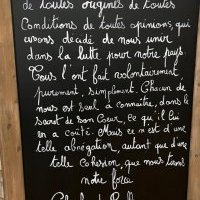 de toutes origines de toutes
Conditions de toutes opinions, qui
avons décidé de nous unir
dans la lutte pour notre pays.
Tous l'ont fait volontairement
purement, simplement. Chacun de
nous est seul à connaître, dans le
secret de son Cœur, ce qu'il lui
en a coûté. Mais ce n'est d'une
telle abnégation, autant que d'une
telle Cohésion, que nous tirons
notre force